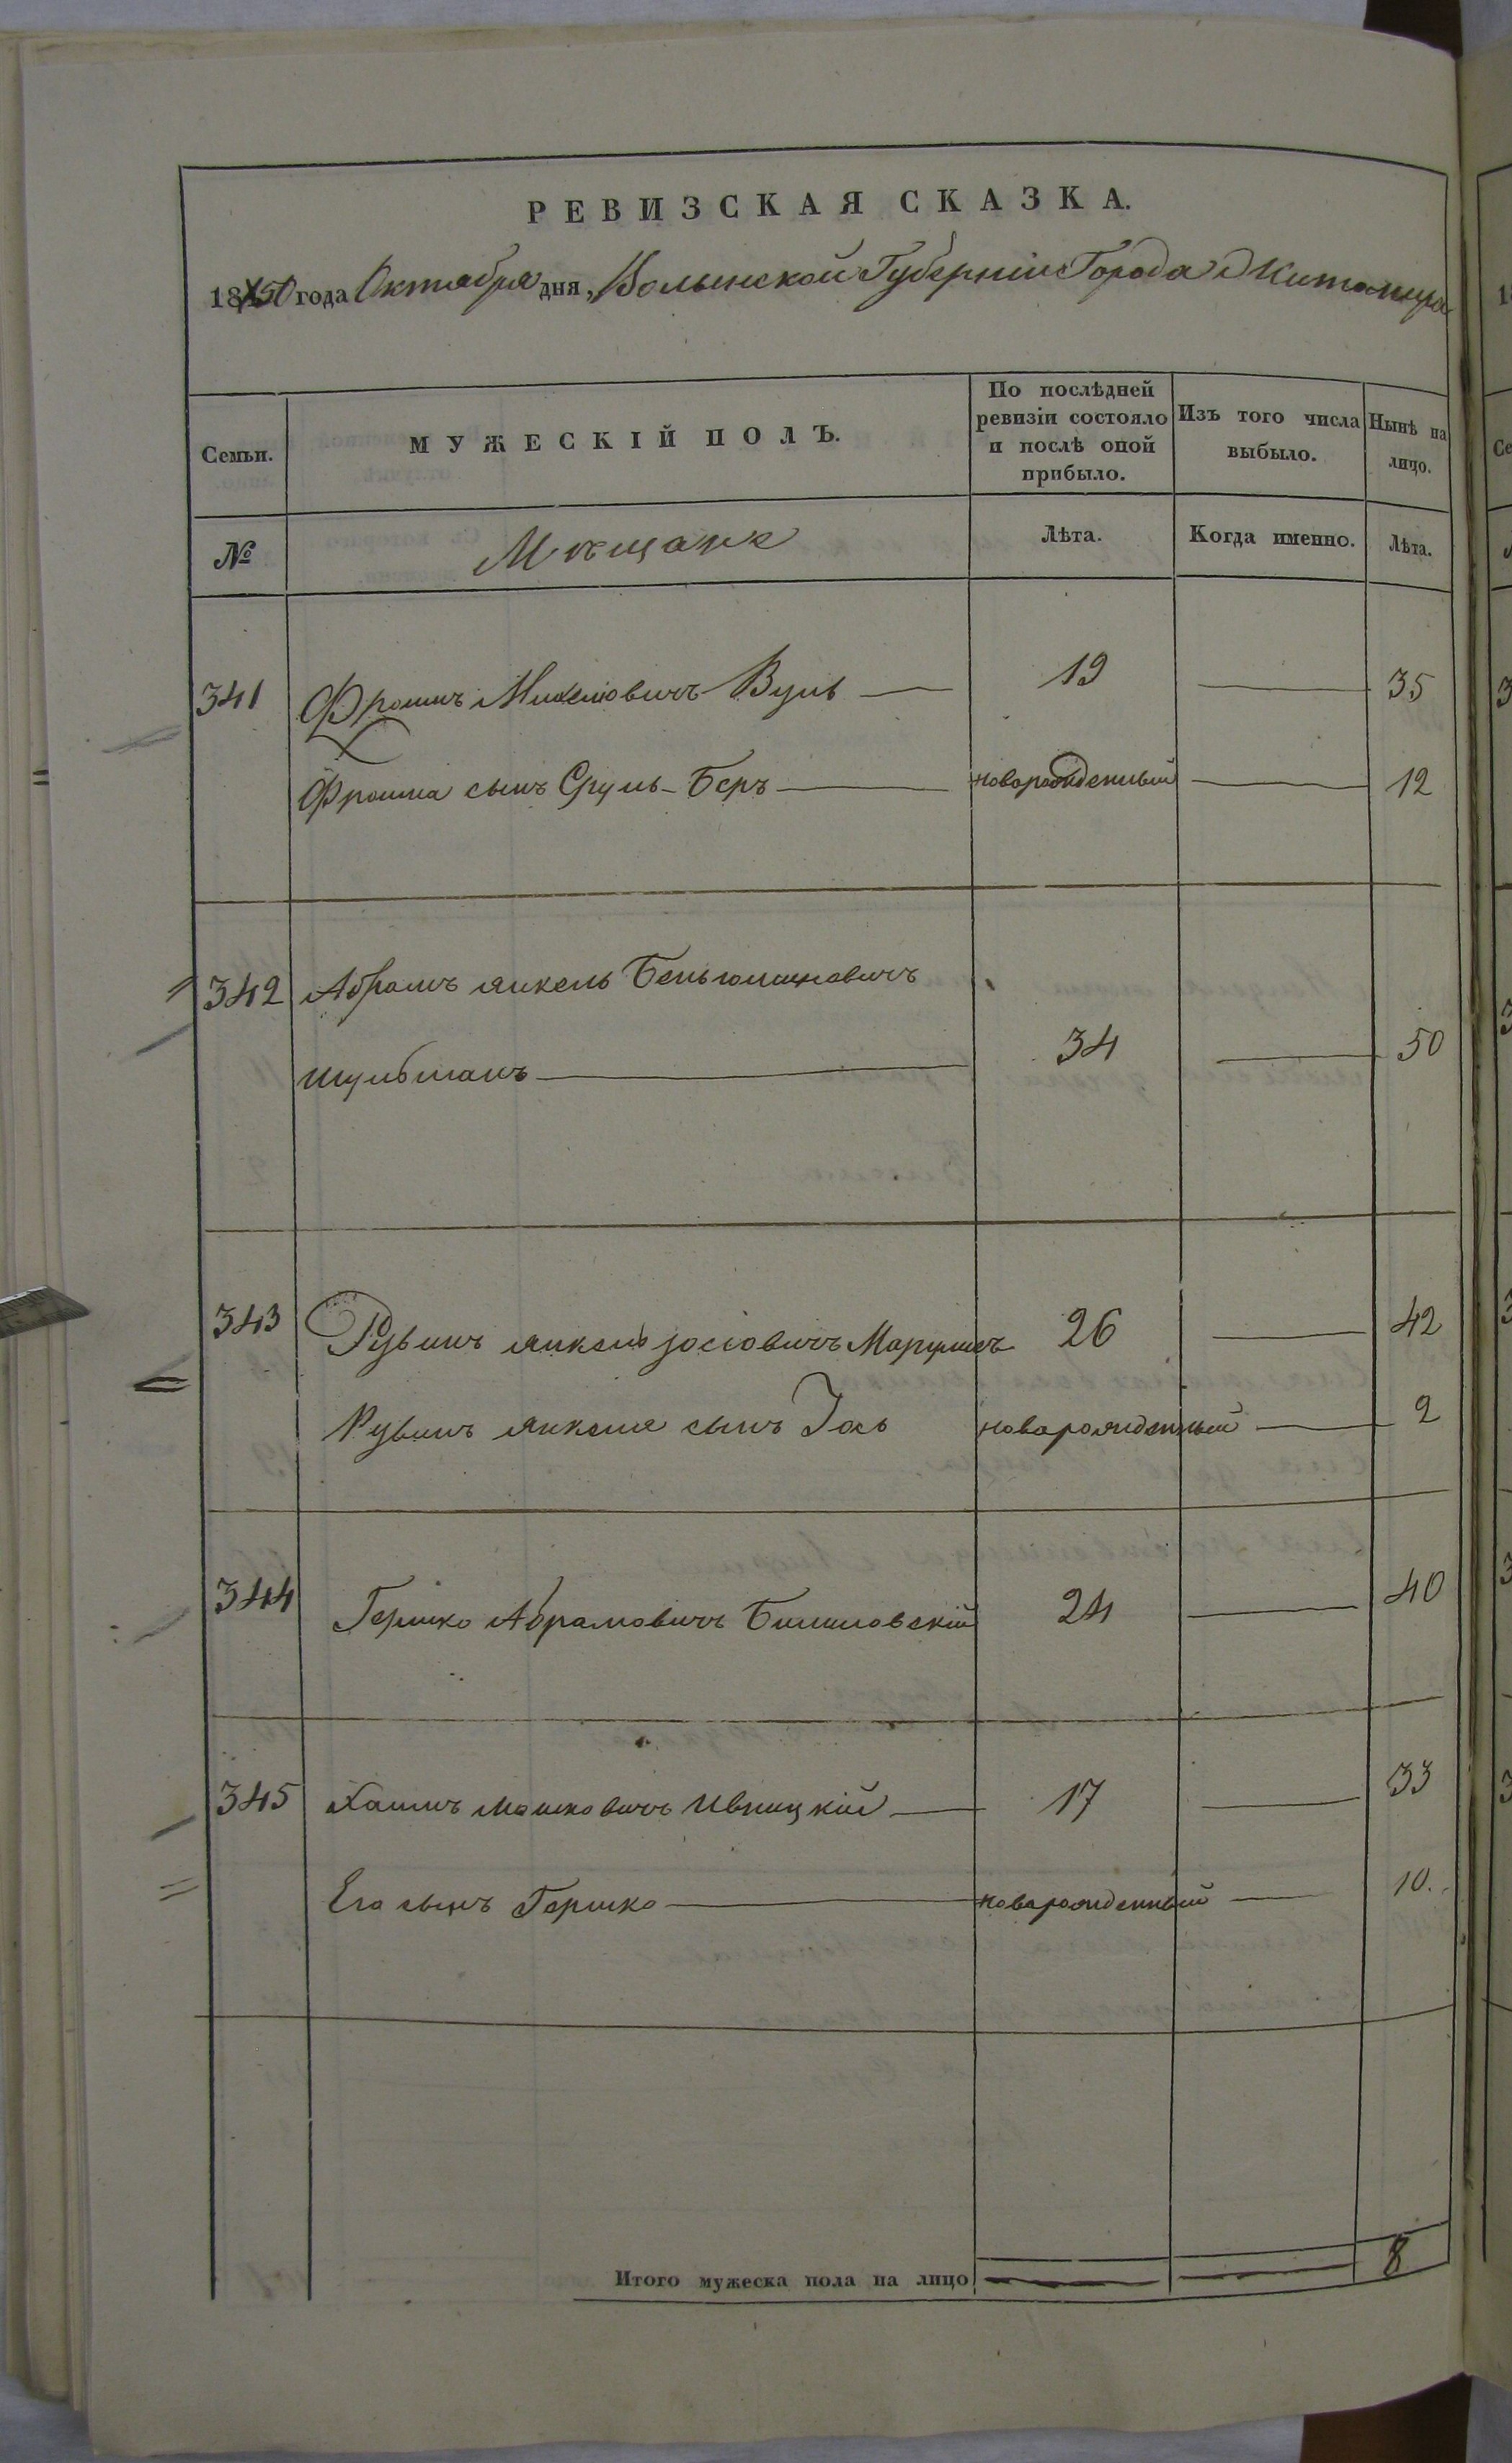 РЕВИЗСКАЯ СКАЗКА.
1850 года Октября дня, Волынской Губерніи Города Житомира
Семьи.
МУЖЕСКІЙ ПОЛЪ.
По послѣдней ревизіи состояло и послѣ оной прибыло.
Изъ того числа выбыло.
Нынѣ на лицо.
№
Мѣщане
Лѣта.
Когда именно.
Лѣта.
341 Фроимъ Михелювичъ Вуль — 19 — 35
Фроима сынъ Сруль-Беръ — новорожденный — 12
342 Абрамъ Янкель Беньюминовичъ
Шульманъ — 34 — 50
343 Рувинъ Янкель Іосіовичъ 26 — 42
Рувинъ Янкеля сынъ Іось новарожденный — 2
344 Гершко Абрамовичъ 24 — 40
345 Хаимъ Мошковичъ Ивницкій — 17 — 33
Его сынъ Гершко — новарожденный — 10.
Итого мужеска пола на лицо — — 8